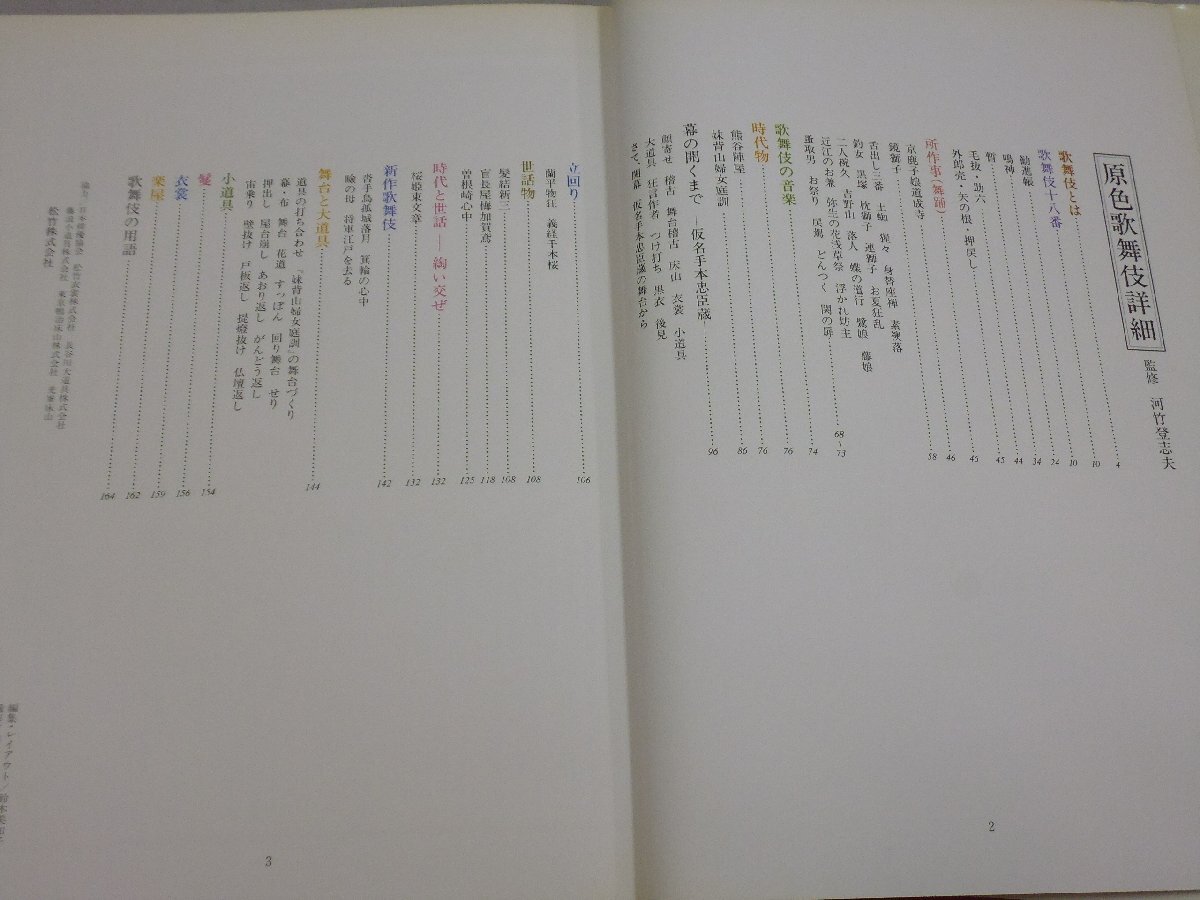 原色歌舞伎詳細
監修 河竹登志夫
歌舞伎とは……4
歌舞伎十八番……10
勧進帳……10
鳴神……24
暫……34
毛抜・助六……44
外郎売・矢の根・押戻し……45
所作事(舞踊)……46
京鹿子娘道成寺……58
鏡獅子
舌出し三番 土蜘 猩々 身替座禅 素襖落
釣女 黒塚 枕獅子 連獅子 お夏狂乱
二人椀久 吉野山 落人 蝶の道行 鷺娘 藤娘
近江のお兼 弥生の花浅草祭 浮かれ坊主……68～73
蚤取男 お祭り 尾規 どんつく 関の扉……74
歌舞伎の音楽……76
時代物……76
熊谷陣屋……86
妹背山婦女庭訓……96
幕の開くまで —仮名手本忠臣蔵—
顔寄せ 稽古 舞台稽古 床山 衣裳 小道具
大道具 狂言作者 つけ打ち 黒衣 後見
さて、開幕 仮名手本忠臣蔵の舞台から
2
立回り……106
蘭平物狂 義経千本桜
世話物……108
髪結新三……108
盲長屋梅加賀鳶……118
曽根崎心中……125
時代と世話——綯い交ぜ……132
桜姫東文章……132
新作歌舞伎……142
沓手鳥孤城落月 箕輪の心中
瞼の母 将軍江戸を去る
舞台と大道具……144
道具の打ち合わせ 『妹背山婦女庭訓』の舞台づくり
幕・布 舞台 花道 すっぽん 回り舞台 せり
押出し 屋台崩し あおり返し がんどう返し
宙乗り 壁抜け 戸板返し 提燈抜け 仏壇返し
小道具……154
鬘……156
衣裳……159
楽屋……162
歌舞伎の用語……164
日本俳優協会 松竹衣裳株式会社 長谷川大道具株式会社
藤浪小道具株式会社 東京鴨治床山株式会社 光峯床山
松竹株式会社
編集・レイアウト/鈴木
3